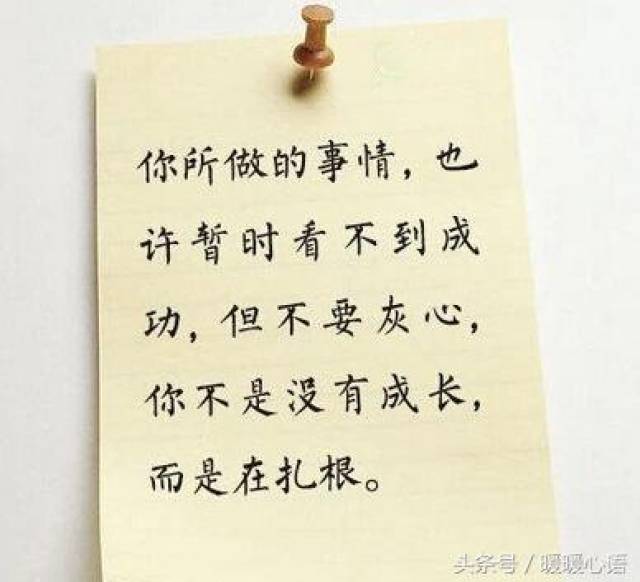 你所做的事情，也
许暂时看不到成
功，但不要灰心，
你不是没有成长，
而是在扎根。
头条号／暖暖心语